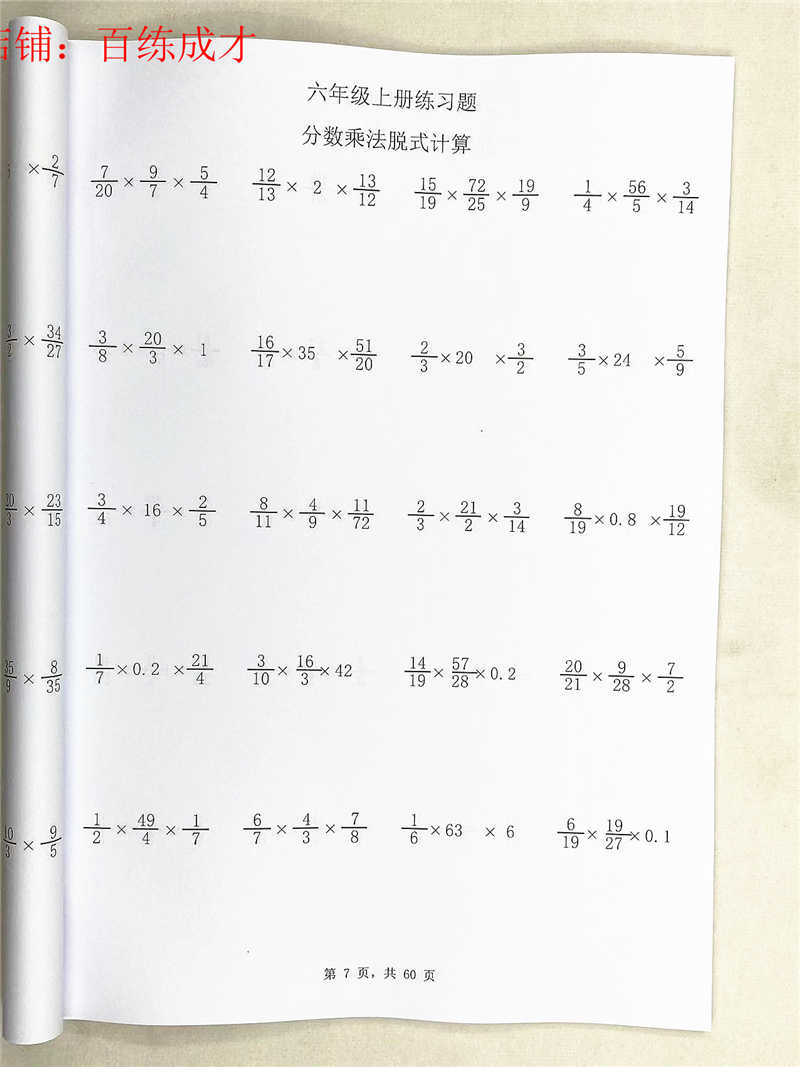 店铺：百练成才
六年级上册练习题
分数乘法脱式计算
× 2/7
7/20 × 9/7 × 5/4   12/13 × 2 × 13/12   15/19 × 72/25 × 19/9   1/4 × 56/5 × 3/14
× 34/27
3/8 × 20/3 × 1   16/17 × 35 × 51/20   2/3 × 20 × 3/2   3/5 × 24 × 5/9
× 23/15
3/4 × 16 × 2/5   8/11 × 4/9 × 11/72   2/3 × 21/2 × 3/14   8/19 × 0.8 × 19/12
35/9 × 8/35
1/7 × 0.2 × 21/4   3/10 × 16/3 × 42   14/19 × 57/28 × 0.2   20/21 × 9/28 × 7/2
× 9/5
1/2 × 49/4 × 1/7   6/7 × 4/3 × 7/8   1/6 × 63 × 6   6/19 × 19/27 × 0.1
第 7 页，共 60 页